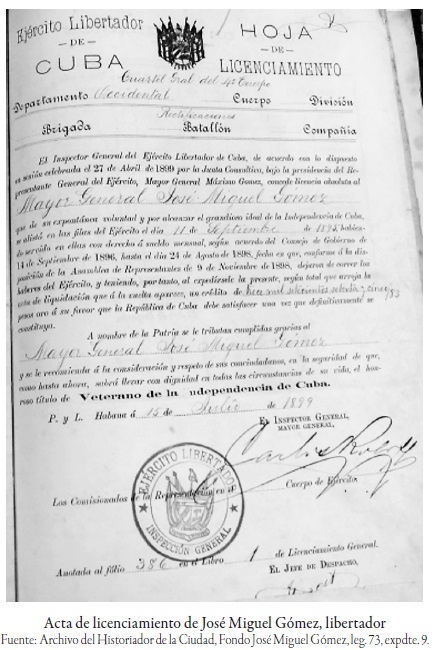 Ejército Libertador
— DE —
CUBA
HOJA
— DE —
LICENCIAMIENTO
Cuartel Gral del 4º Cuerpo
Departamento Occidental Cuerpo División
Rectificaciones
Brigada Batallón Compañia
El Inspector General del Ejército Libertador de Cuba, de acuerdo con lo dispuesto
en sesión celebrada el 27 de Abril de 1899 por la Junta Consultiva, bajo la presidencia del Re-
presentante General del Ejército, Mayor General Máximo Gomez, concede licencia absoluta al
Mayor General José Miguel Gomez
que de su expontánea voluntad y por alcanzar el grandioso ideal de la Independencia de Cuba,
se alistó en las filas del Ejército el dia 11 de Septiembre de 1895, habien-
do servido en ellas con derecho á sueldo mensual, según acuerdo del Consejo de Gobierno de
14 de Septiembre de 1896, hasta el dia 24 de Agosto de 1898, fecha en que, conforme á la dis-
posición de la Asamblea de Representantes de 9 de Noviembre de 1898, dejaron de correr los
haberes del Ejército, y teniendo, por tanto, al expedirsele la presente, según total que arroja la
nota de liquidación que á la vuelta aparece, un crédito de
pesos oro á su favor que la República de Cuba debe satisfacer una vez que definitivamente se
constituya.
A nombre de la Patria se le tributan cumplidas gracias al
Mayor General José Miguel Gomez
y se le recomienda á la consideración y respeto de sus conciudadanos, en la seguridad de que,
como hasta ahora, sabrá llevar con dignidad en todas las circunstancias de su vida, el hon-
roso título de Veterano de la Independencia de Cuba.
P. y L. Habana á 15 de Julio de 1899
EL INSPECTOR GENERAL,
MAYOR GENERAL,
EJÉRCITO LIBERTADOR
INSPECCIÓN GENERAL
Los Comisionados de la Representación en el Cuerpo de Ejército,
Anotada al folio 386 en el Libro 1 de Licenciamiento General.
EL JEFE DE DESPACHO,
Acta de licenciamiento de José Miguel Gómez, libertador
Fuente: Archivo del Historiador de la Ciudad, Fondo José Miguel Gómez, leg. 73, expdte. 9.